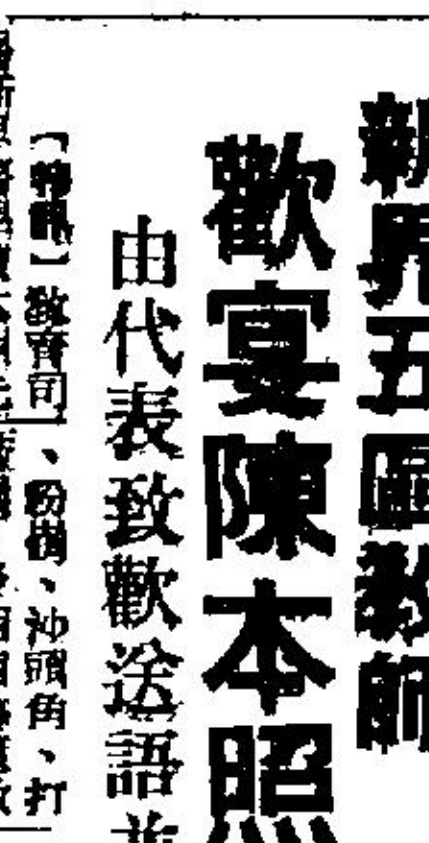 新界五區教師
歡宴陳本照
由代表致歡送語並
【特訊】教育司
、粉嶺、沙頭角、打